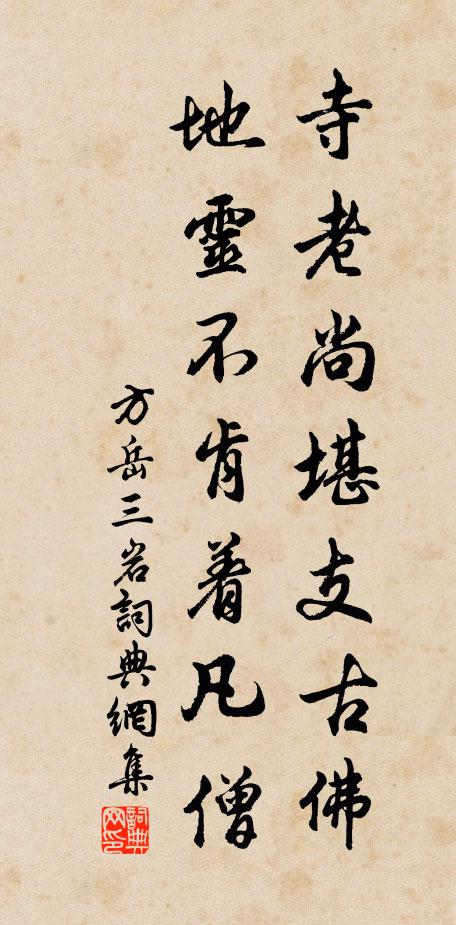 寺老尚堪支古佛
地靈不肯着凡僧
方岳三岩詞典網集
詞典網印